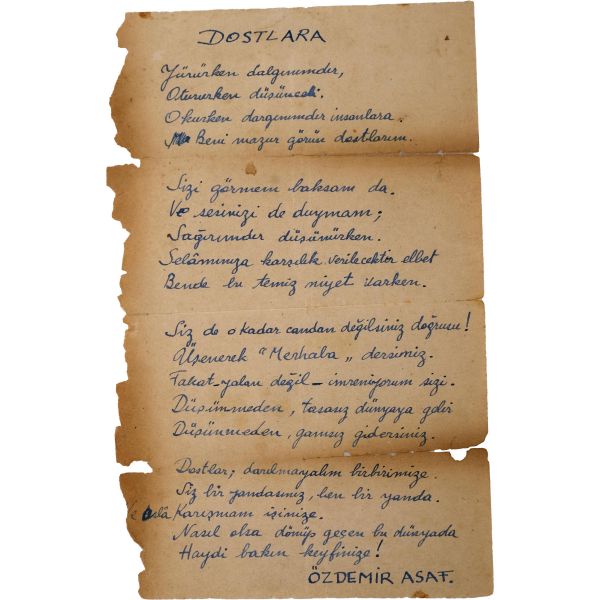 DOSTLARA
Yürürken dalgınımdır,
Otururken düşünceli.
Okurken dargınımdır insanlara.
Beni mazur görün dostlarım.
Sizi görmem baksam da.
Ve sesinizi de duymam;
Sağırımdır düşünürken.
Selâmınıza karşılık verilecektir elbet
Bende bu temiz niyet varken.
Siz de o kadar candan değilsiniz doğrusu!
Üşenerek "Merhaba" dersiniz.
Fakat-yalan değil-imreniyorum sizi.
Düşünmeden, tasasız dünyaya gelir
Düşünmeden, gamsız gidersiniz.
Dostlar; darılmayalım birbirimize.
Siz bir yandasınız, ben bir yanda.
Karışmam işinize.
Nasıl olsa dönüp geçen bu dünyada
Haydi bakın keyfinize!
ÖZDEMİR ASAF.